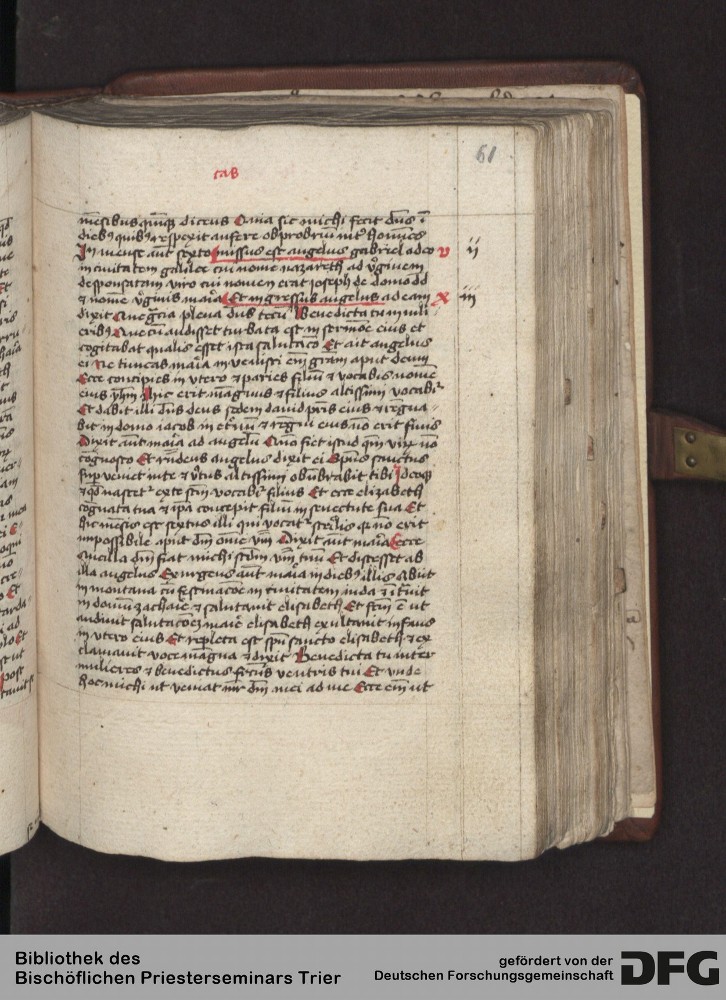 61
cas
mēsibus quinqꝫ dicens Quia sic michi fecit dns ī
diebꝫ quibꝫ respexit auferre obprobriū int̉ homīes
In mense aut sexto missus est angelus gabriel a deo v ij
in ciuitatem galilee cui nomē nazareth ad v̉ginem
desponsatam viro cui nomen erat ioseph de domo dd
et nomē v̉ginis maīa Et ingressus angelus ad eam x iij
dixit Aue grā plena dns tecū Benedicta tu in muli
eribꝫ Que cū audisset turbata est in sermōe eius et
cogitabat qualis esset ista salutacō Et ait angelus
ei Ne timeas maīa inuenisti em̄ gram aput deum
Ecce concipies in vtero et paries filiū et vocabis nomē
eius yhm Hic erit magnus et filius altissimi vocabit̉
Et dabit illi dns deus sedem dauid pris eius et regna
bit in domo iacob in et̉nū et regni eius nō erit finis
Dixit aut maīa ad angelū Quō fiet istud qm̄ virū nō
cognosco Et rn̄dens angelus dixit ei Spūs sanctus
supueniet in te et v̉tus altissimi obūbrabit tibi Ideoqꝫ
et qd nascet̉ ex te scm̄ vocabit̉ filius Et ecce elizabeth
cognata tua et ipā concepit filiū in senectute sua Et
hic mēsis est sextus illi que vocat̉ sterilis quia nō erit
impossibile aput dm̄ om̄e v̉bū Dixit aut maīa Ecce
Ancilla dn̄i fiat michi scdm v̉bū tuū Et discessit ab
illa angelus Exurgens aut maīa in diebꝫ illis Abijt
in montana cū festinacōe in ciuitatem iuda et ītrauit
in domū zacharie et salutauit elisabeth Et fcm̄ ē ut
audiuit salutacōeꝫ marie elisabeth exultauit infans
in vtero eius Et repleta est spū sancto elisabeth et ex
clamauit voce magna et dixit Benedicta tu inter
mulieres et benedictus fructus ventris tui Et unde
hoc michi ut veniat mr̄ dn̄i mei ad me Ecce em̄ ut
Bibliothek des
Bischöflichen Priesterseminars Trier
gefördert von der
Deutschen Forschungsgemeinschaft
DFG